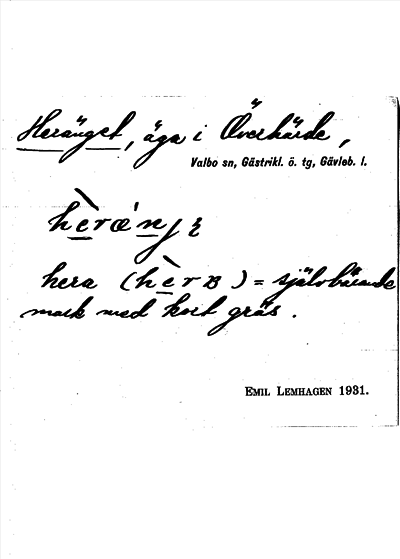 Heränget, äga i Överhärde,
Valbo sn, Gästrikl. ö. tg, Gävleb. l.
hèræ´nj
hera (hèrв) = självbärande
mark med kort gräs.
EMIL LEMHAGEN 1931.